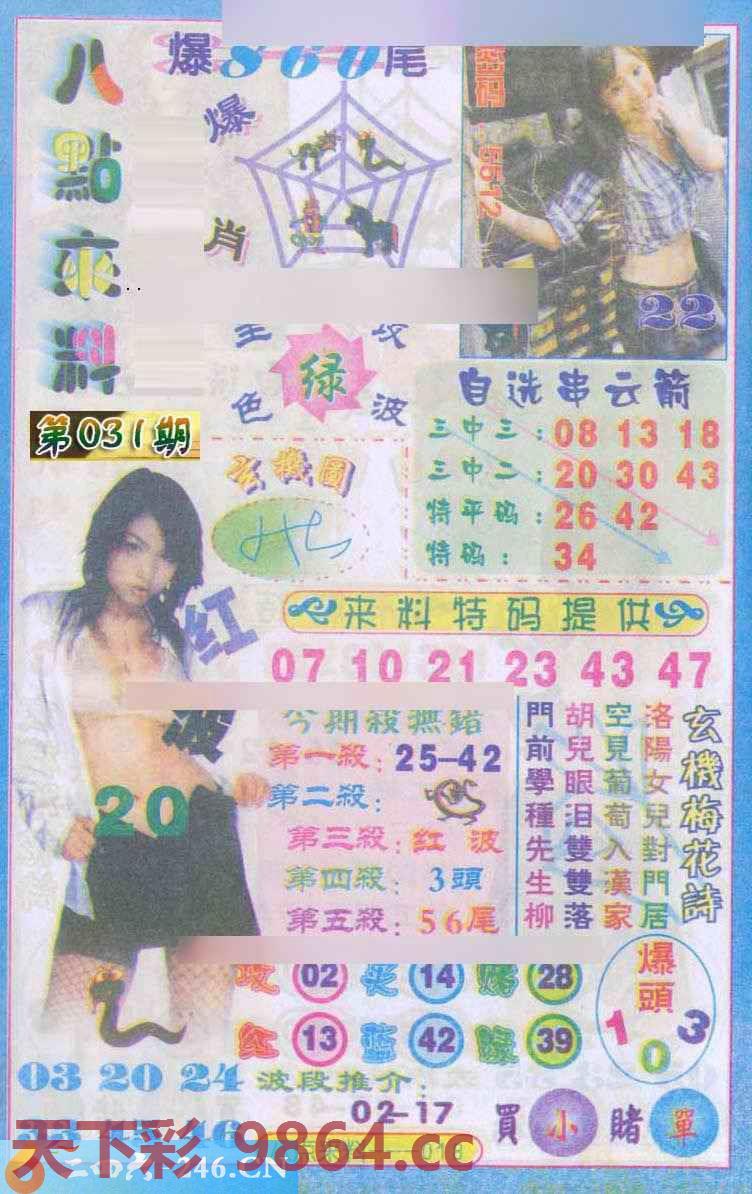 八點來料
爆860尾
爆肖
5512
22
绿
色波
第031期
玄機圖
自选串云箭
三中三:08 13 18
三中二:20 30 43
特平码:26 42
特码:34
红波
20
来料特码提供
07 10 21 23 43 47
今期殺無錯
第一殺:25-42
第二殺:
第三殺:红波
第四殺:3頭
第五殺:56尾
玄機梅花詩
洛陽女兒對門居
空見葡萄入漢家
胡兒眼泪雙雙落
門前學種先生柳
02 14 28
红13 蓝42 绿39
爆頭
1 0 3
03 20 24
波段推介:
02-17
買小賭單
天下彩.9864.cc
二四六 246.CN